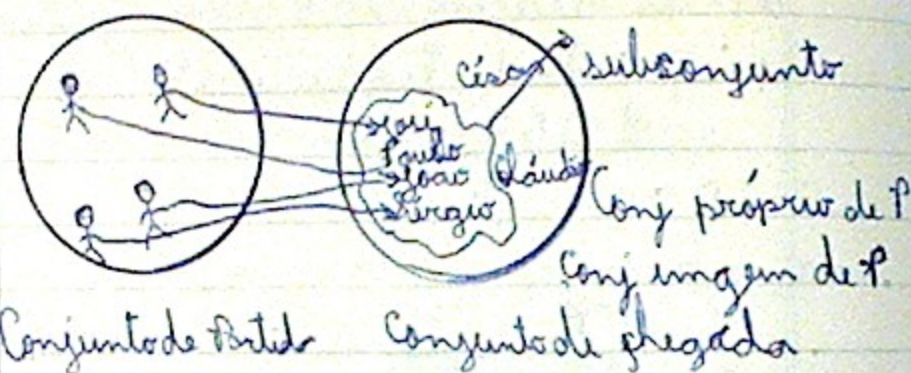 César subconjunto
José
Paulo
João Cláudio
Sérgio
Conj próprio de P
Conj imagem de P.
Conjunto de Partida Conjunto de chegada